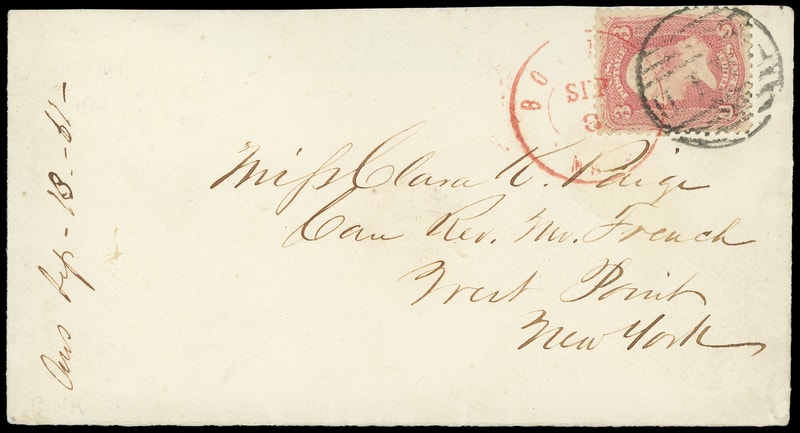 BO
SEP
3
3
3
U
S
Miss Clara K. Paige
Care Rev. Mr. French
West Point
New York
Ans Sep - 13 - 61 -